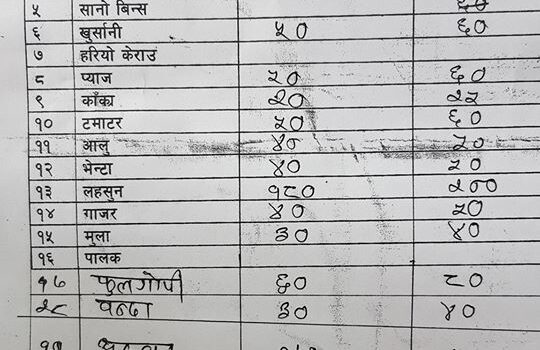 ५ सानो बिन्स ६०
६ खुर्सानी ५० ६०
७ हरियो केराउ
८ प्याज ५० ६०
९ काँक्रा २० २५
१० टमाटर ५० ६०
११ आलु ४० ५०
१२ भेन्टा ४० ५०
१३ लहसुन १८० २००
१४ गाजर ४० ५०
१५ मुला ३० ४०
१६ पालक
१७ फुलगोपी ६० ८०
१८ वन्दा ३० ४०